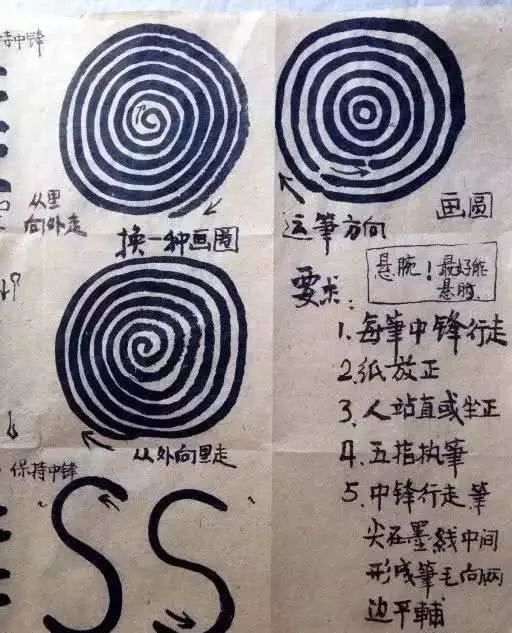 持中锋
从里
向外走
换一种画圈
运筆方向
画圆
悬腕！最好能
悬肘
要求：
1. 每筆中锋行走
2. 纸放正
3. 人站直或坐正
4. 五指执筆
5. 中锋行走筆
尖在墨线中间
形成筆毛向两
边平輔
从外向里走
保持中锋